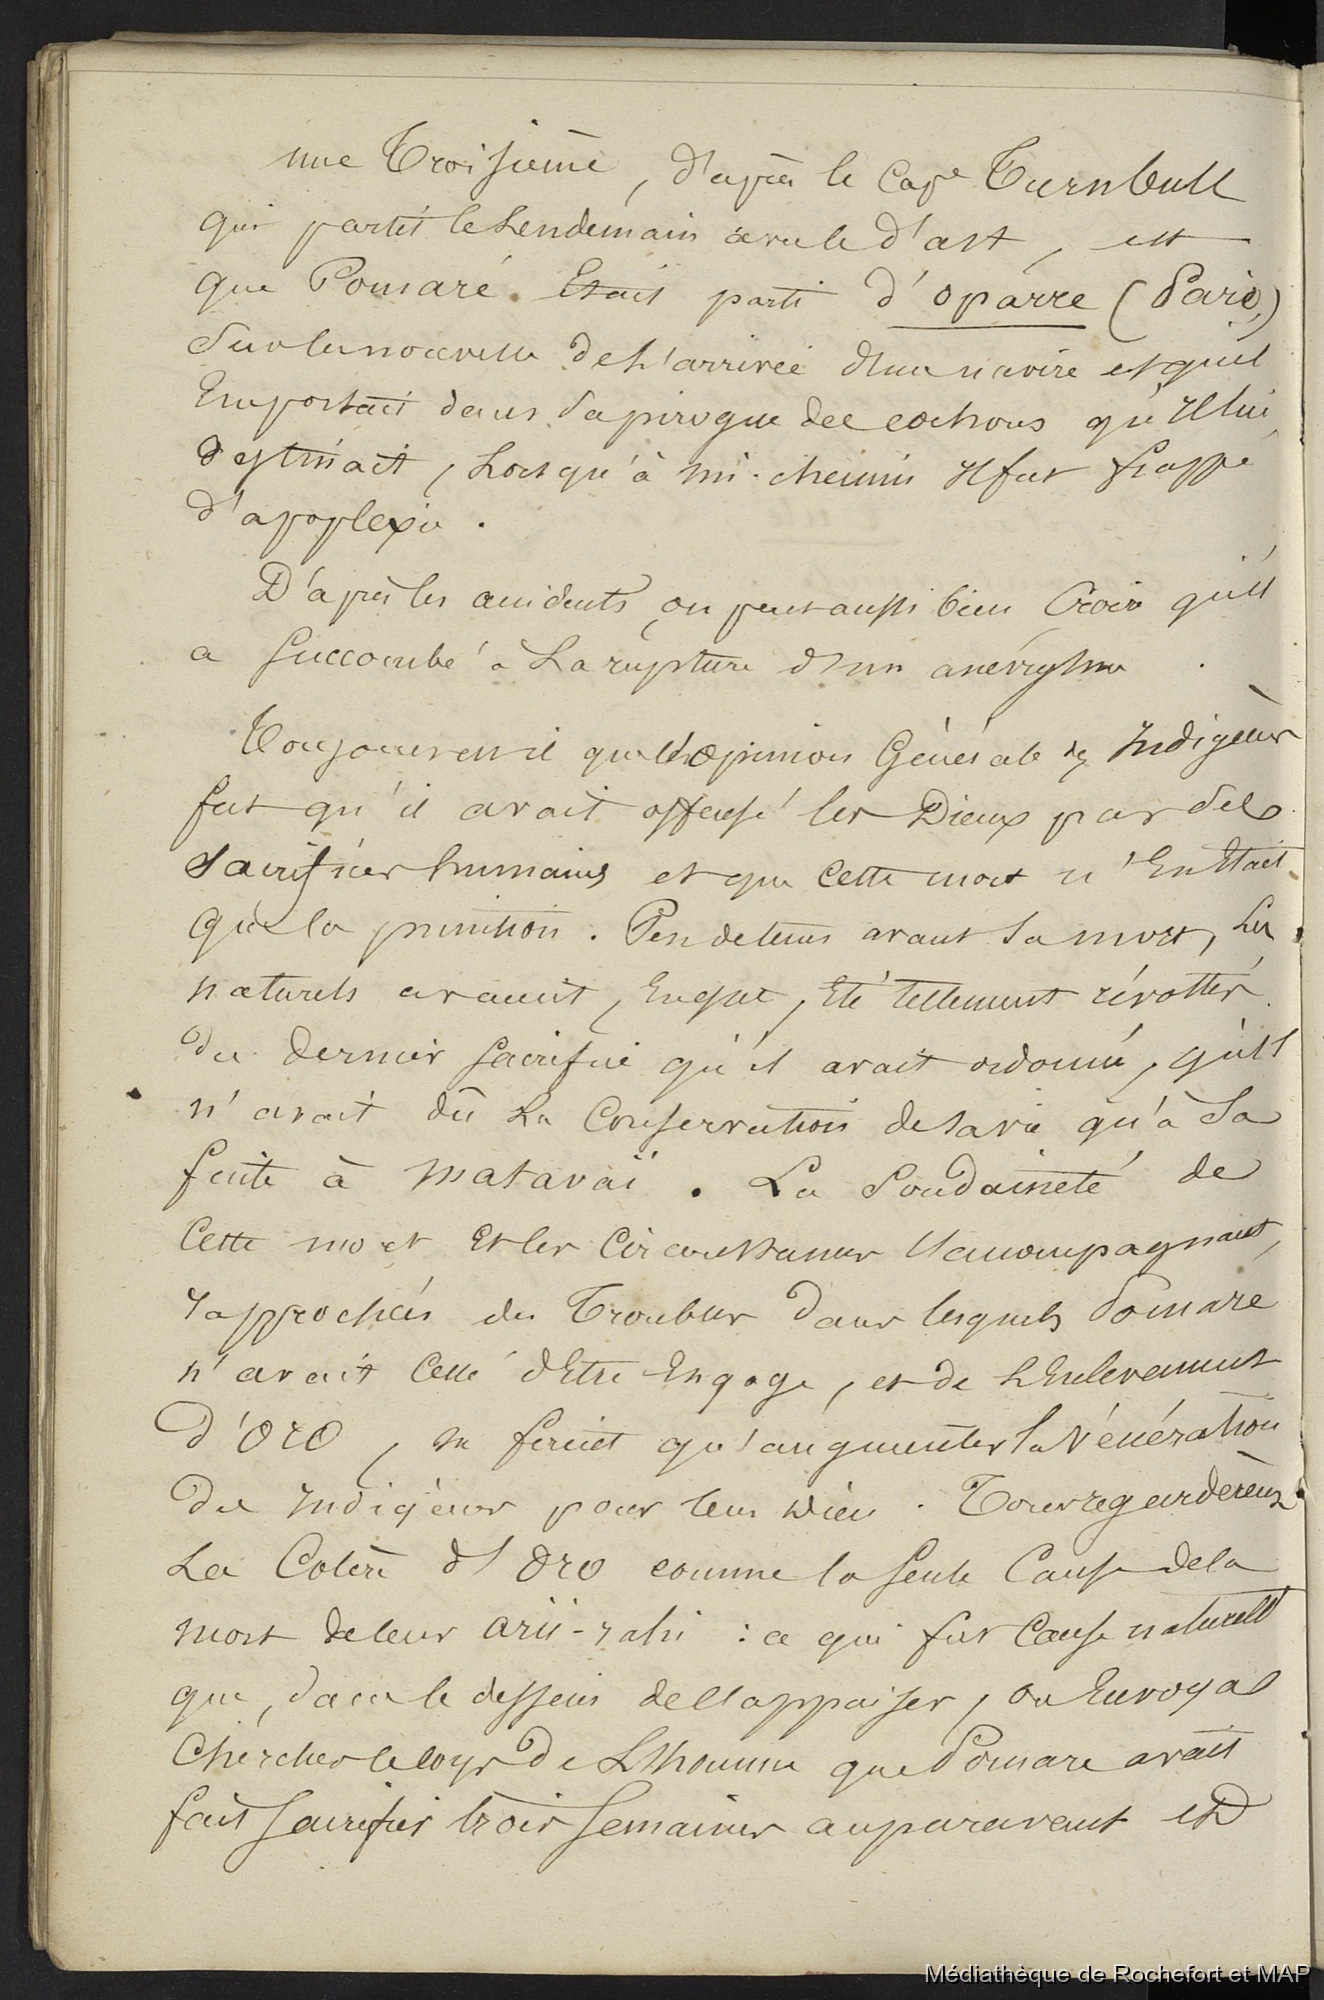 une Troisième, d'après le Cape Turnbull
qui partit le Lendemain avec le d'ast, est
que Pomaré était parti d'oparre (Paré,)
Sur la nouvelle de L'arrivée d'un navire et qu'il
Emportait dans Sa pirogue des cochons qu'Il lui
destinait, Lorsqu'à mi-chemin Il fut frappé
d'apoplexie.
D'après les accidents, on peut aussi bien Croire qu'il
a Succombé à La rupture d'un anévrysme.
Toujours est-il que l'opinion Générale des Indigènes
fut qu'il avait offensé les Dieux par des
Sacrifices humains et que Cette mort n'En Etait
que la punition. Peu de tems avant Sa mort, Les
naturels avaient, En effet, Eté tellement révoltés
du dernier Sacrifice qu'il avait ordonné, qu'il
n'avait dû La Conservation de Sa vie qu'à Sa
fuite à Matavaï. La Soudaineté de
Cette mort Et les Circonstances L'accompagnant,
rapprochés des Troubles dans lesquels Pomaré
n'avait Cessé d'Etre Engagé, et de L'Enlèvement
d'Oro, ne firent qu'augmenter la Vénération
des Indigènes pour leur Dieu. Tous regardèrent
La Colère d'Oro comme la Seule Cause de la
mort de leur arii-rahi : ce qui fut Cause naturelle
que, dans le dessein de l'appaiser, on Envoya
Chercher le corps de L'homme que Pomaré avait
fait Sacrifier trois Semaines auparavant et
Médiathèque de Rochefort et MAP